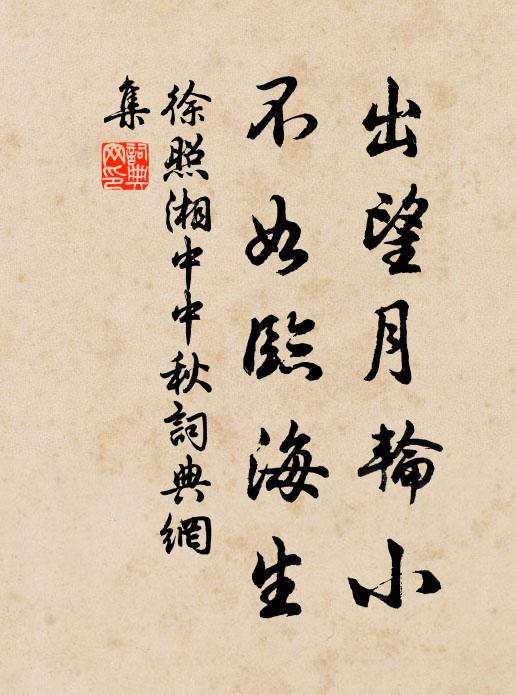 出望月輪小
不如臨海生
徐照湘中中秋詞典網
集
詞典網印